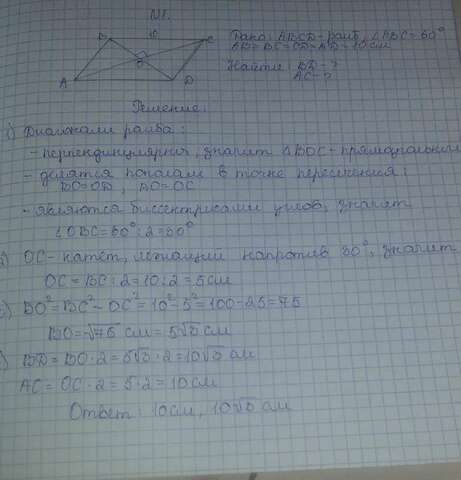 №1.
B 10 C
O
A D
Дано: ABCD - ромб, ∠ABC = 60°
AB=BC=CD=AD=10см
Найти: BD - ?
AC - ?
Решение:
1) Диагонали ромба:
- перпендикулярны, значит △BOC - прямоугольный
- делятся пополам в точке пересечения:
BO=OD, AO=OC
- являются биссектрисами углов, значит
∠OBC=60°:2=30°
2) OC - катет, лежащий напротив 30°, значит
OC=BC:2=10:2=5см
3) BO²=BC²-OC²=10²-5²=100-25=75
BO=√75 см=5√3 см
4) BD=BO·2=5√3·2=10√3 см
AC=OC·2=5·2=10см
Ответ: 10см, 10√3 см